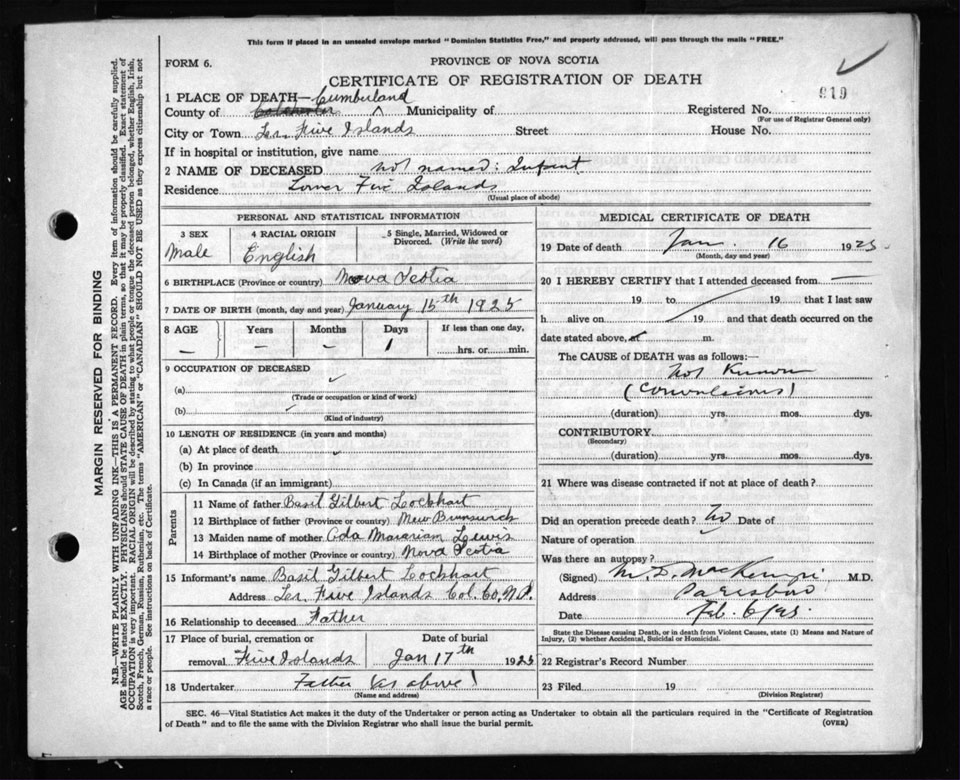 This form if placed in an unsealed envelope marked "Dominion Statistics Free," and properly addressed, will pass through the mails "FREE."
FORM 6.
PROVINCE OF NOVA SCOTIA
CERTIFICATE OF REGISTRATION OF DEATH
619
1 PLACE OF DEATH— Cumberland
County of Colchester X Municipality of Registered No.
(For use of Registrar General only)
City or Town Lr. Five Islands Street House No.
If in hospital or institution, give name
2 NAME OF DECEASED not named: Infant
Residence Lower Five Islands
(Usual place of abode)
PERSONAL AND STATISTICAL INFORMATION
3 SEX 4 RACIAL ORIGIN 5 Single, Married, Widowed or Divorced. (Write the word)
Male English
6 BIRTHPLACE (Province or country) Nova Scotia
7 DATE OF BIRTH (month, day and year) January 15th 1925
8 AGE Years Months Days If less than one day,
— — — 1 hrs. or min.
9 OCCUPATION OF DECEASED
(a)
(Trade or occupation or kind of work)
(b)
(Kind of industry)
10 LENGTH OF RESIDENCE (in years and months)
(a) At place of death
(b) In province
(c) In Canada (if an immigrant)
Parents
11 Name of father Basil Gilbert Lockhart
12 Birthplace of father (Province or country) New Brunswick
13 Maiden name of mother Lewis
14 Birthplace of mother (Province or country) Nova Scotia
15 Informant's name Basil Gilbert Lockhart
Address Lr. Five Islands Col. Co, N.S.
16 Relationship to deceased Father
17 Place of burial, cremation or Date of burial
removal Five Islands Jan 17th 1925
18 Undertaker Father (as above)
(Name and address)
MEDICAL CERTIFICATE OF DEATH
19 Date of death Jan. 16 1925
(Month, day and year)
20 I HEREBY CERTIFY that I attended deceased from
19 to 19 that I last saw
h alive on 19 and that death occurred on
date stated above, at m.
The CAUSE of DEATH was as follows:—
Not Known
(Convulsions)
(duration) yrs. mos. dys.
CONTRIBUTORY
(Secondary)
(duration) yrs. mos. dys.
21 Where was disease contracted if not at place of death?
Did an operation precede death? No Date of
Nature of operation
Was there an autopsy?
(Signed) MacKenzie M.D.
Address Parrsboro
Date Feb. 6/25
State the Disease causing Death, or in death from Violent Causes, state (1) Means and Nature of Injury, (2) whether Accidental, Suicidal or Homicidal.
22 Registrar's Record Number
23 Filed 19
(Division Registrar)
SEC. 46—Vital Statistics Act makes it the duty of the Undertaker or person acting as Undertaker to obtain all the particulars required in the "Certificate of Registration
of Death" and to file the same with the Division Registrar who shall issue the burial permit. (OVER)
MARGIN RESERVED FOR BINDING
N.B.—WRITE PLAINLY WITH UNFADING INK—THIS IS A PERMANENT RECORD. Every item of information should be carefully supplied.
AGE should be stated EXACTLY. PHYSICIANS should STATE CAUSE OF DEATH in plain terms, so that it may be properly classified. Exact statement of
OCCUPATION is very important. RACIAL ORIGIN will be described by stating to what people or tongue the deceased person belonged, whether English, Irish,
Scotch, French, German, Russian, Ruthenian, etc. The terms "AMERICAN" or "CANADIAN" SHOULD NOT BE USED as they express citizenship but not
a race or people. See instructions on back of Certificate.